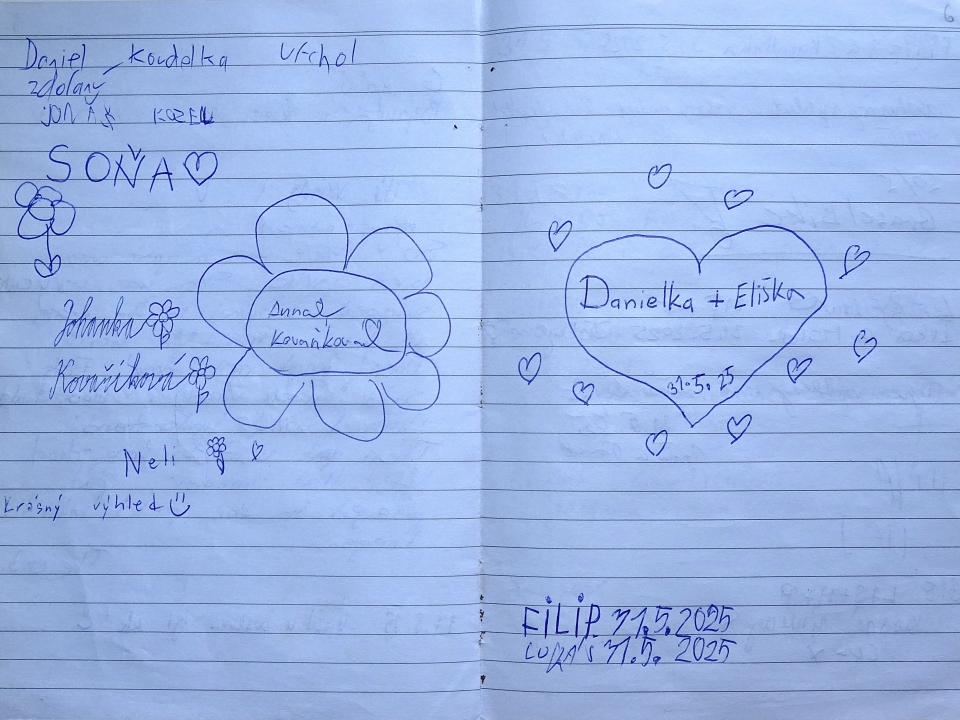 Daniel Koudelka Vrchol
zdolaný
JONÁŠ KOZEL
SOŇA
Johanka
Kovaříková
Anna
Kovaříková
Neli
Krásný výhled
6
Danielka + Eliška
31.5.25
FiLiP 31.5.2025
LUKÁŠ 31.5. 2025